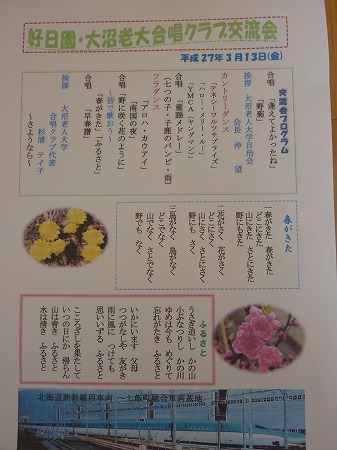 好日園・大沼老大合唱クラブ交流会
平成27年3月13日(金)
交流会プログラム
合唱 「逢えてよかったね」
「野菊」
挨拶 大沼老人大学自治会
会長 沖 望
カントリーダンス
「テネシーワルツサプライズ」
「ハロー・メリー・ルー」
「YMCA(ヤングマン)」
合唱 「童謡メドレー」
(七つの子・子鹿のバンビ・雨)
フラダンス
「アロハ・カウアイ」
「南国の夜」
~皆で歌おう~
合唱 「野に咲く花のように」
「春がきた」「ふるさと」
合唱 「早春譜」
挨拶 大沼老人大学
合唱クラブ代表
杉浦 テイ子
~さようなら~
春がきた
一春がきた 春がきた
どこにきた
山にきた さとにきた
野にもきた
二花がさく 花がさく
どこにさく
山にさく さとにさく
野にもさく
三鳥がなく 鳥がなく
どこでなく
山でなく さとでなく
野でも なく
ふるさと
うさぎ追いし かの山
小ぶなつりし かの川
ゆめは今も めぐりて
忘れがたき ふるさと
いかにいます 父母
つつがなしや 友がき
雨に風に つけても
思いいずる ふるさと
こころざしを果たして
いつの日にか 帰らん
山は青き ふるさと
水は清き ふるさと
北海道新幹線用車両 ~七飯町総合車両基地